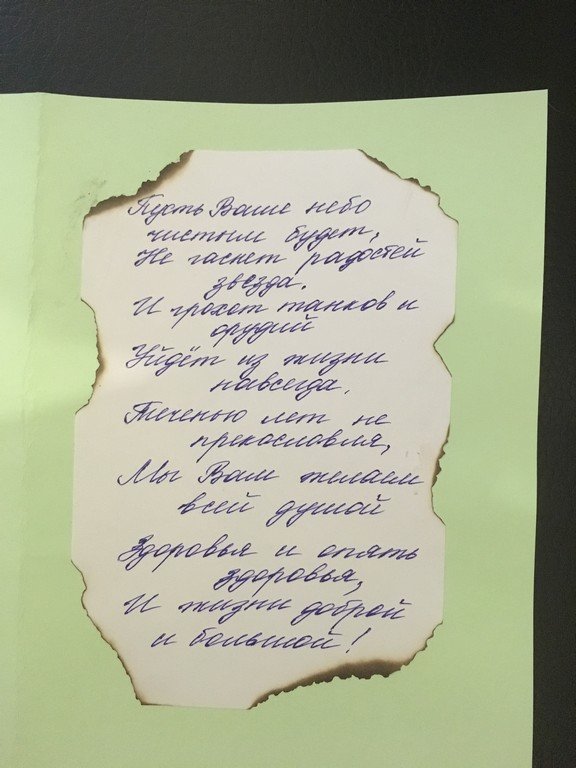 Пусть Ваше небо
чистым будет,
Не гаснет радостей
звезда.
И грохот танков и
орудий
Уйдёт из жизни
навсегда.
Теченью лет не
прекословля,
Мы Вам желаем
всей душой
Здоровья и опять
здоровья,
И жизни доброй
и большой!